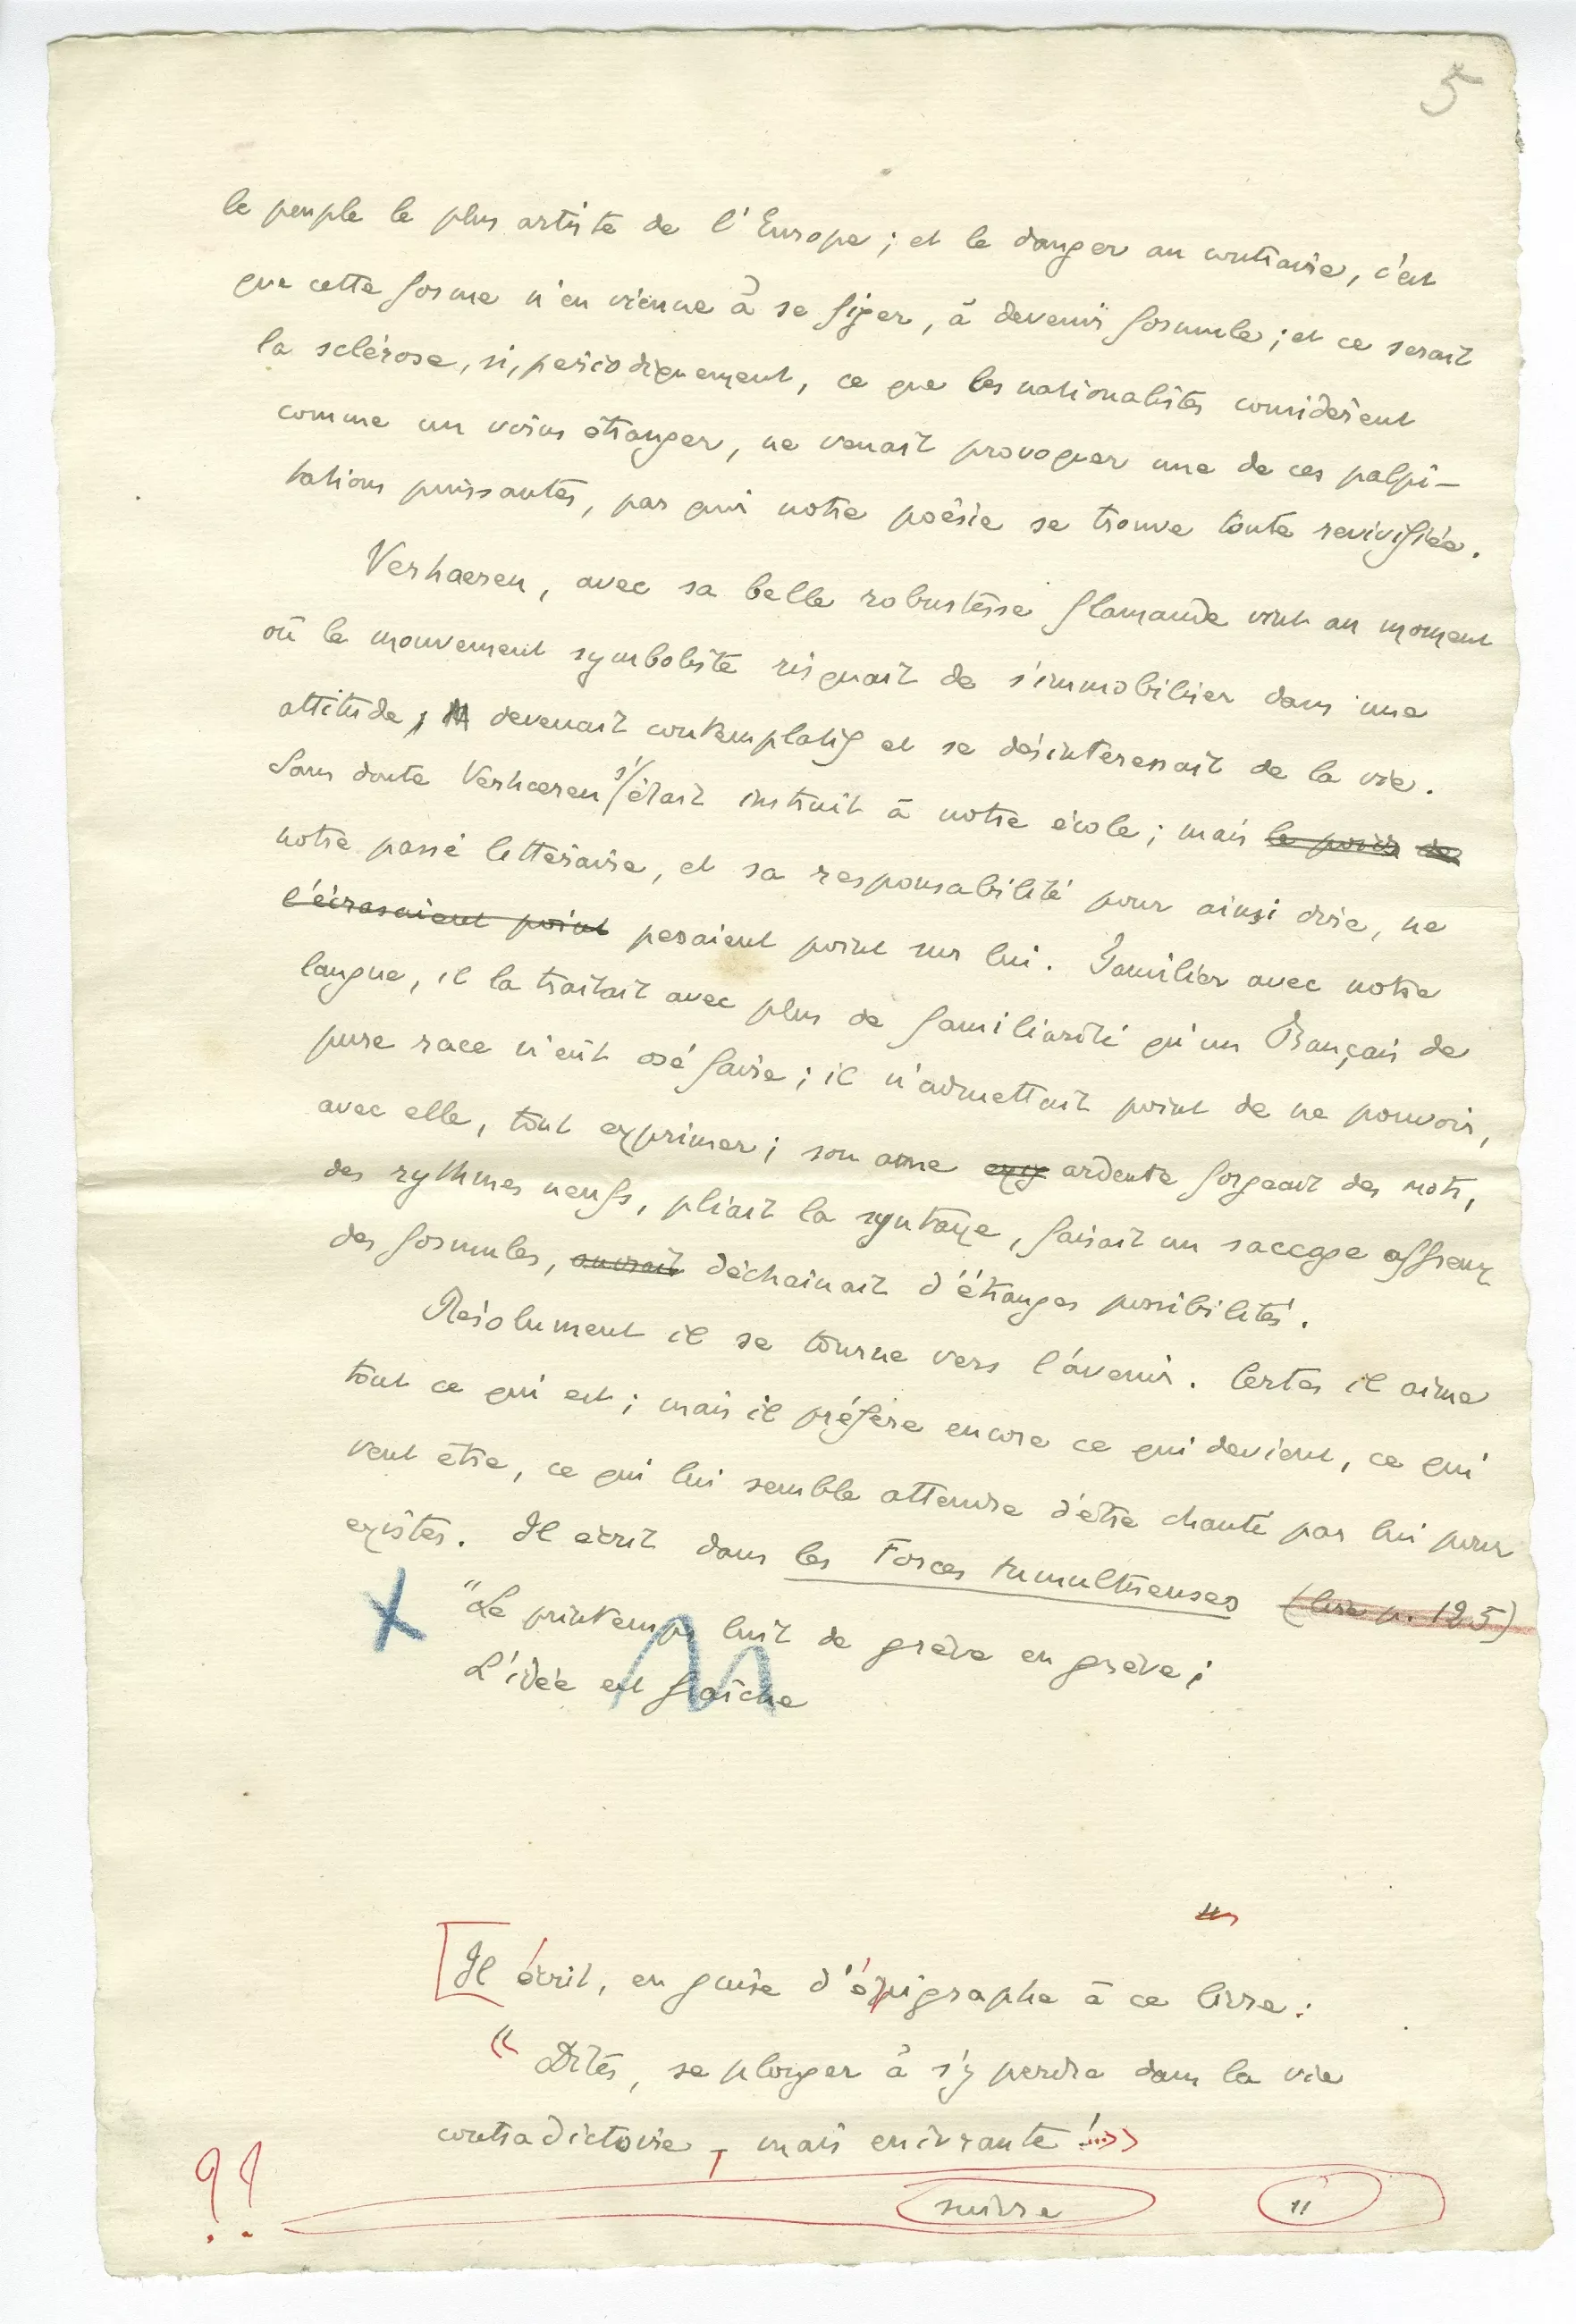 5
le peuple le plus artiste de l'Europe ; et le danger au contraire, c'est
que cette forme n'en vienne à se figer, à devenir formule ; et ce serait
la sclérose, si, périodiquement, ce que les nationalistes considèrent
comme un virus étranger, ne venait provoquer une de ces palpi-
tations puissantes, par qui notre poésie se trouve toute revivifiée.
Verhaeren, avec sa belle robustesse flamande vint au moment
où le mouvement symboliste risquait de s'immobiliser dans une
attitude, devenait contemplatif et se désintéressait de la vie.
Sans doute Verhaeren s'était instruit à notre école ; mais le poids de
notre passé littéraire, et sa responsabilité pour ainsi dire, ne
l'écrasaient point pesaient point sur lui. Familier avec notre
langue, il la traitait avec plus de familiarité qu'un Français de
pure race n'eût osé faire ; il n'admettait point de ne pouvoir,
avec elle, tout exprimer ; son ame exig ardente forgeait des mots,
des rythmes neufs, pliait la syntaxe, faisait un saccage affreux
des formules, ouvrait déchaînait d'étranges possibilités.
Résolument il se tourne vers l'avenir. Certes il aime
tout ce qui est ; mais il préfère encore ce qui devient, ce qui
veut être, ce qui lui semble attendre d'être chanté par lui pour
exister. Il écrit dans les Forces tumultueuses (lire p. 125)
X "Le printemps luit de grève en grève ;
L'idée est fraîche
"
[Il écrit, en guise d'épigraphe à ce livre :
« Dites, se plonger à s'y perdre dans la vie
contradictoire, mais enivrante !...»
?? suivre "